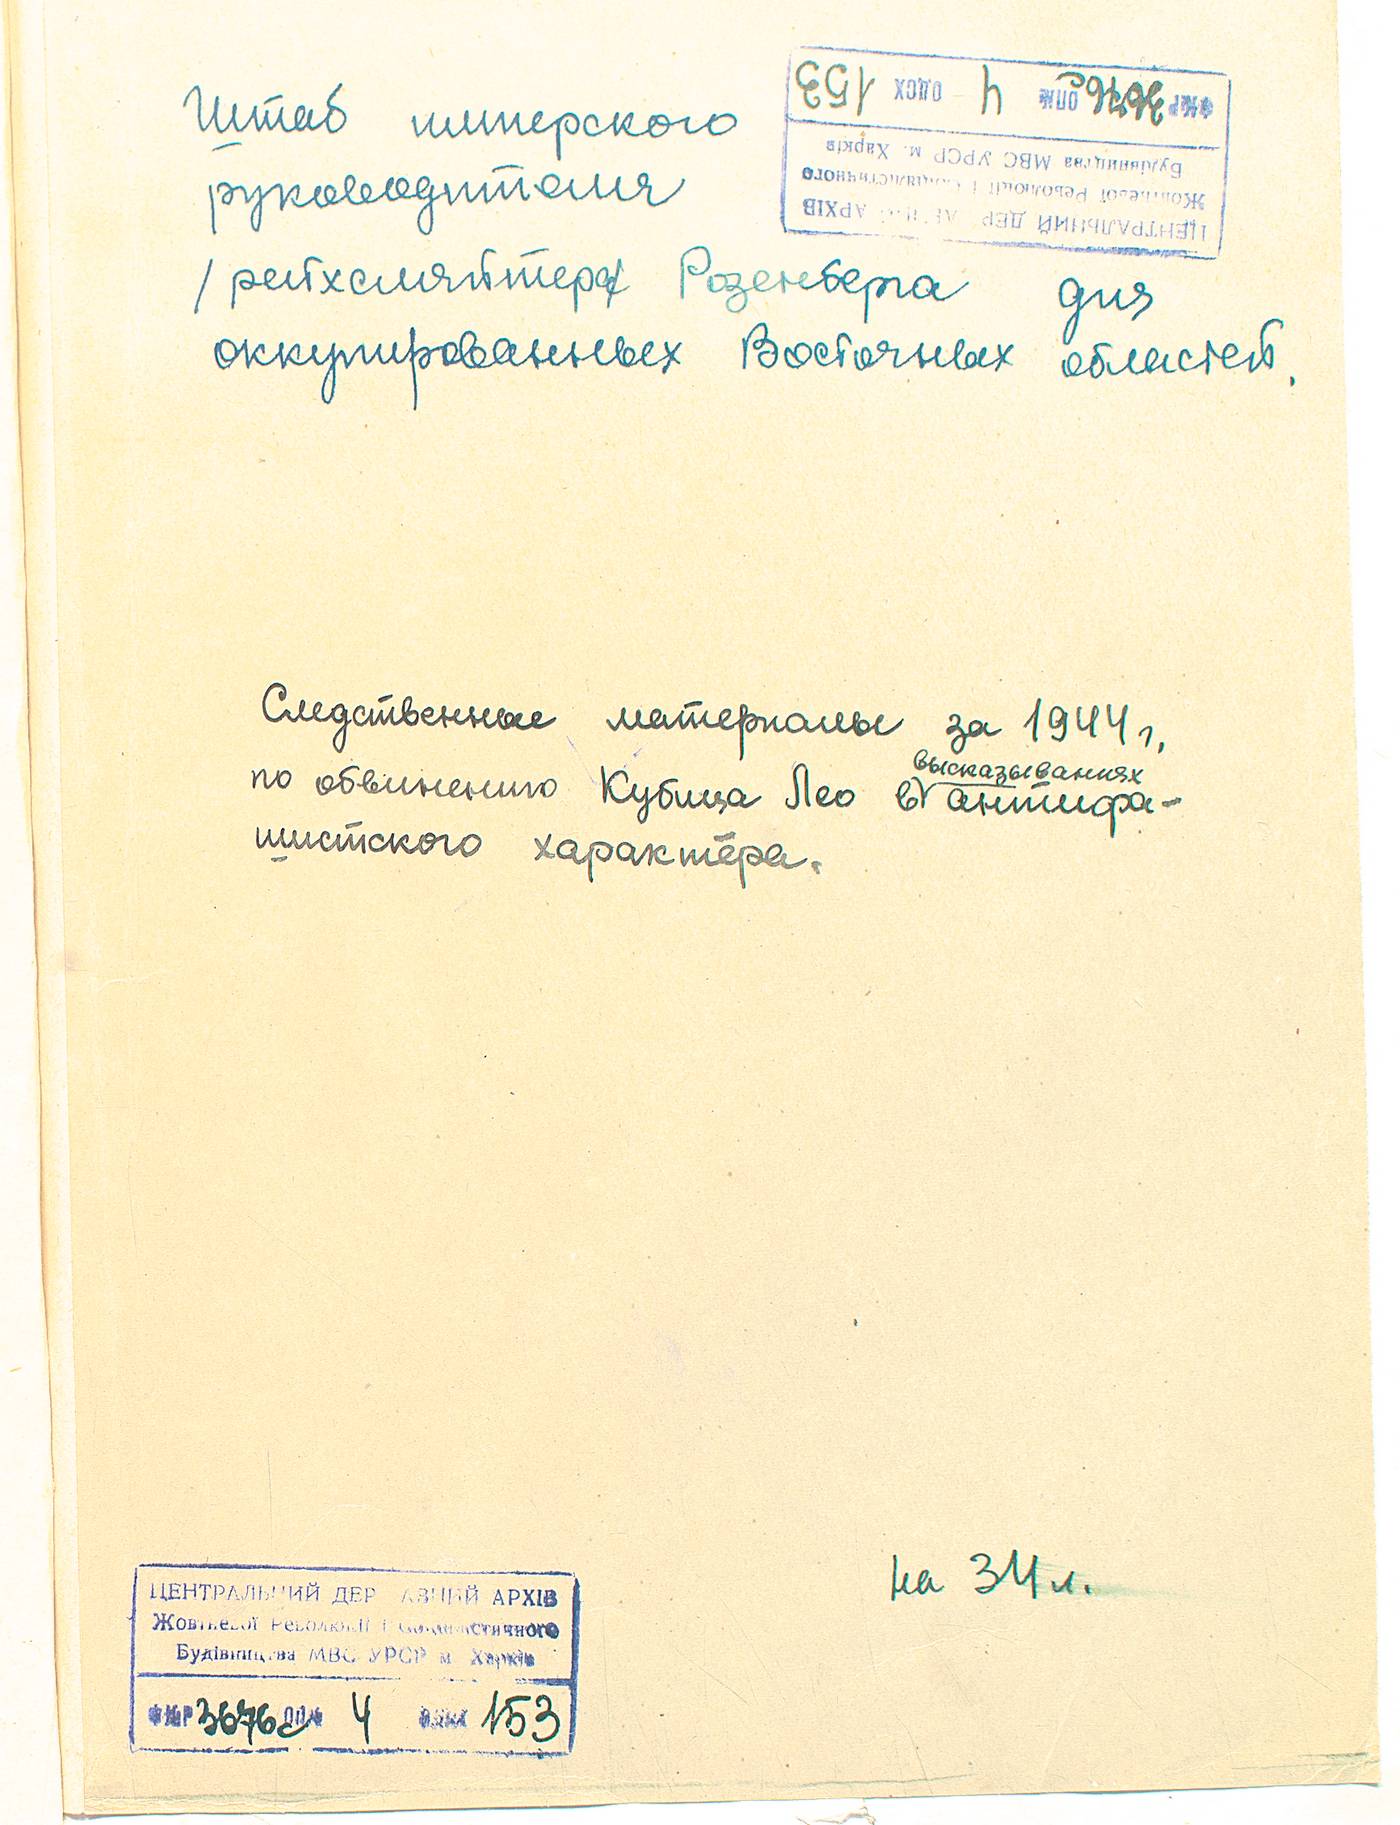 Штаб имперского
руководителя
/рейхсляйтера/ Розенберга для
оккупированных Восточных областей.
ЦЕНТРАЛЬНИЙ ДЕР АВНИЙ АРХІВ
Жовтневої Революції і Соціалістичного
Будівництва МВС УРСР м. Харків
Ф№Р 3676с ОП№ 4 ОДСХ 153
Следственные материалы за 1944 г.
высказываниях
по обвинению Кубица Лео в антифа-
шистского характера.
на 34 л.
ЦЕНТРАЛЬНИЙ ДЕР АВНИЙ АРХІВ
Жовтневої Революції і Соціалістичного
Будівництва МВС УРСР м. Харків
Ф№Р 3676с ОП№ 4 153